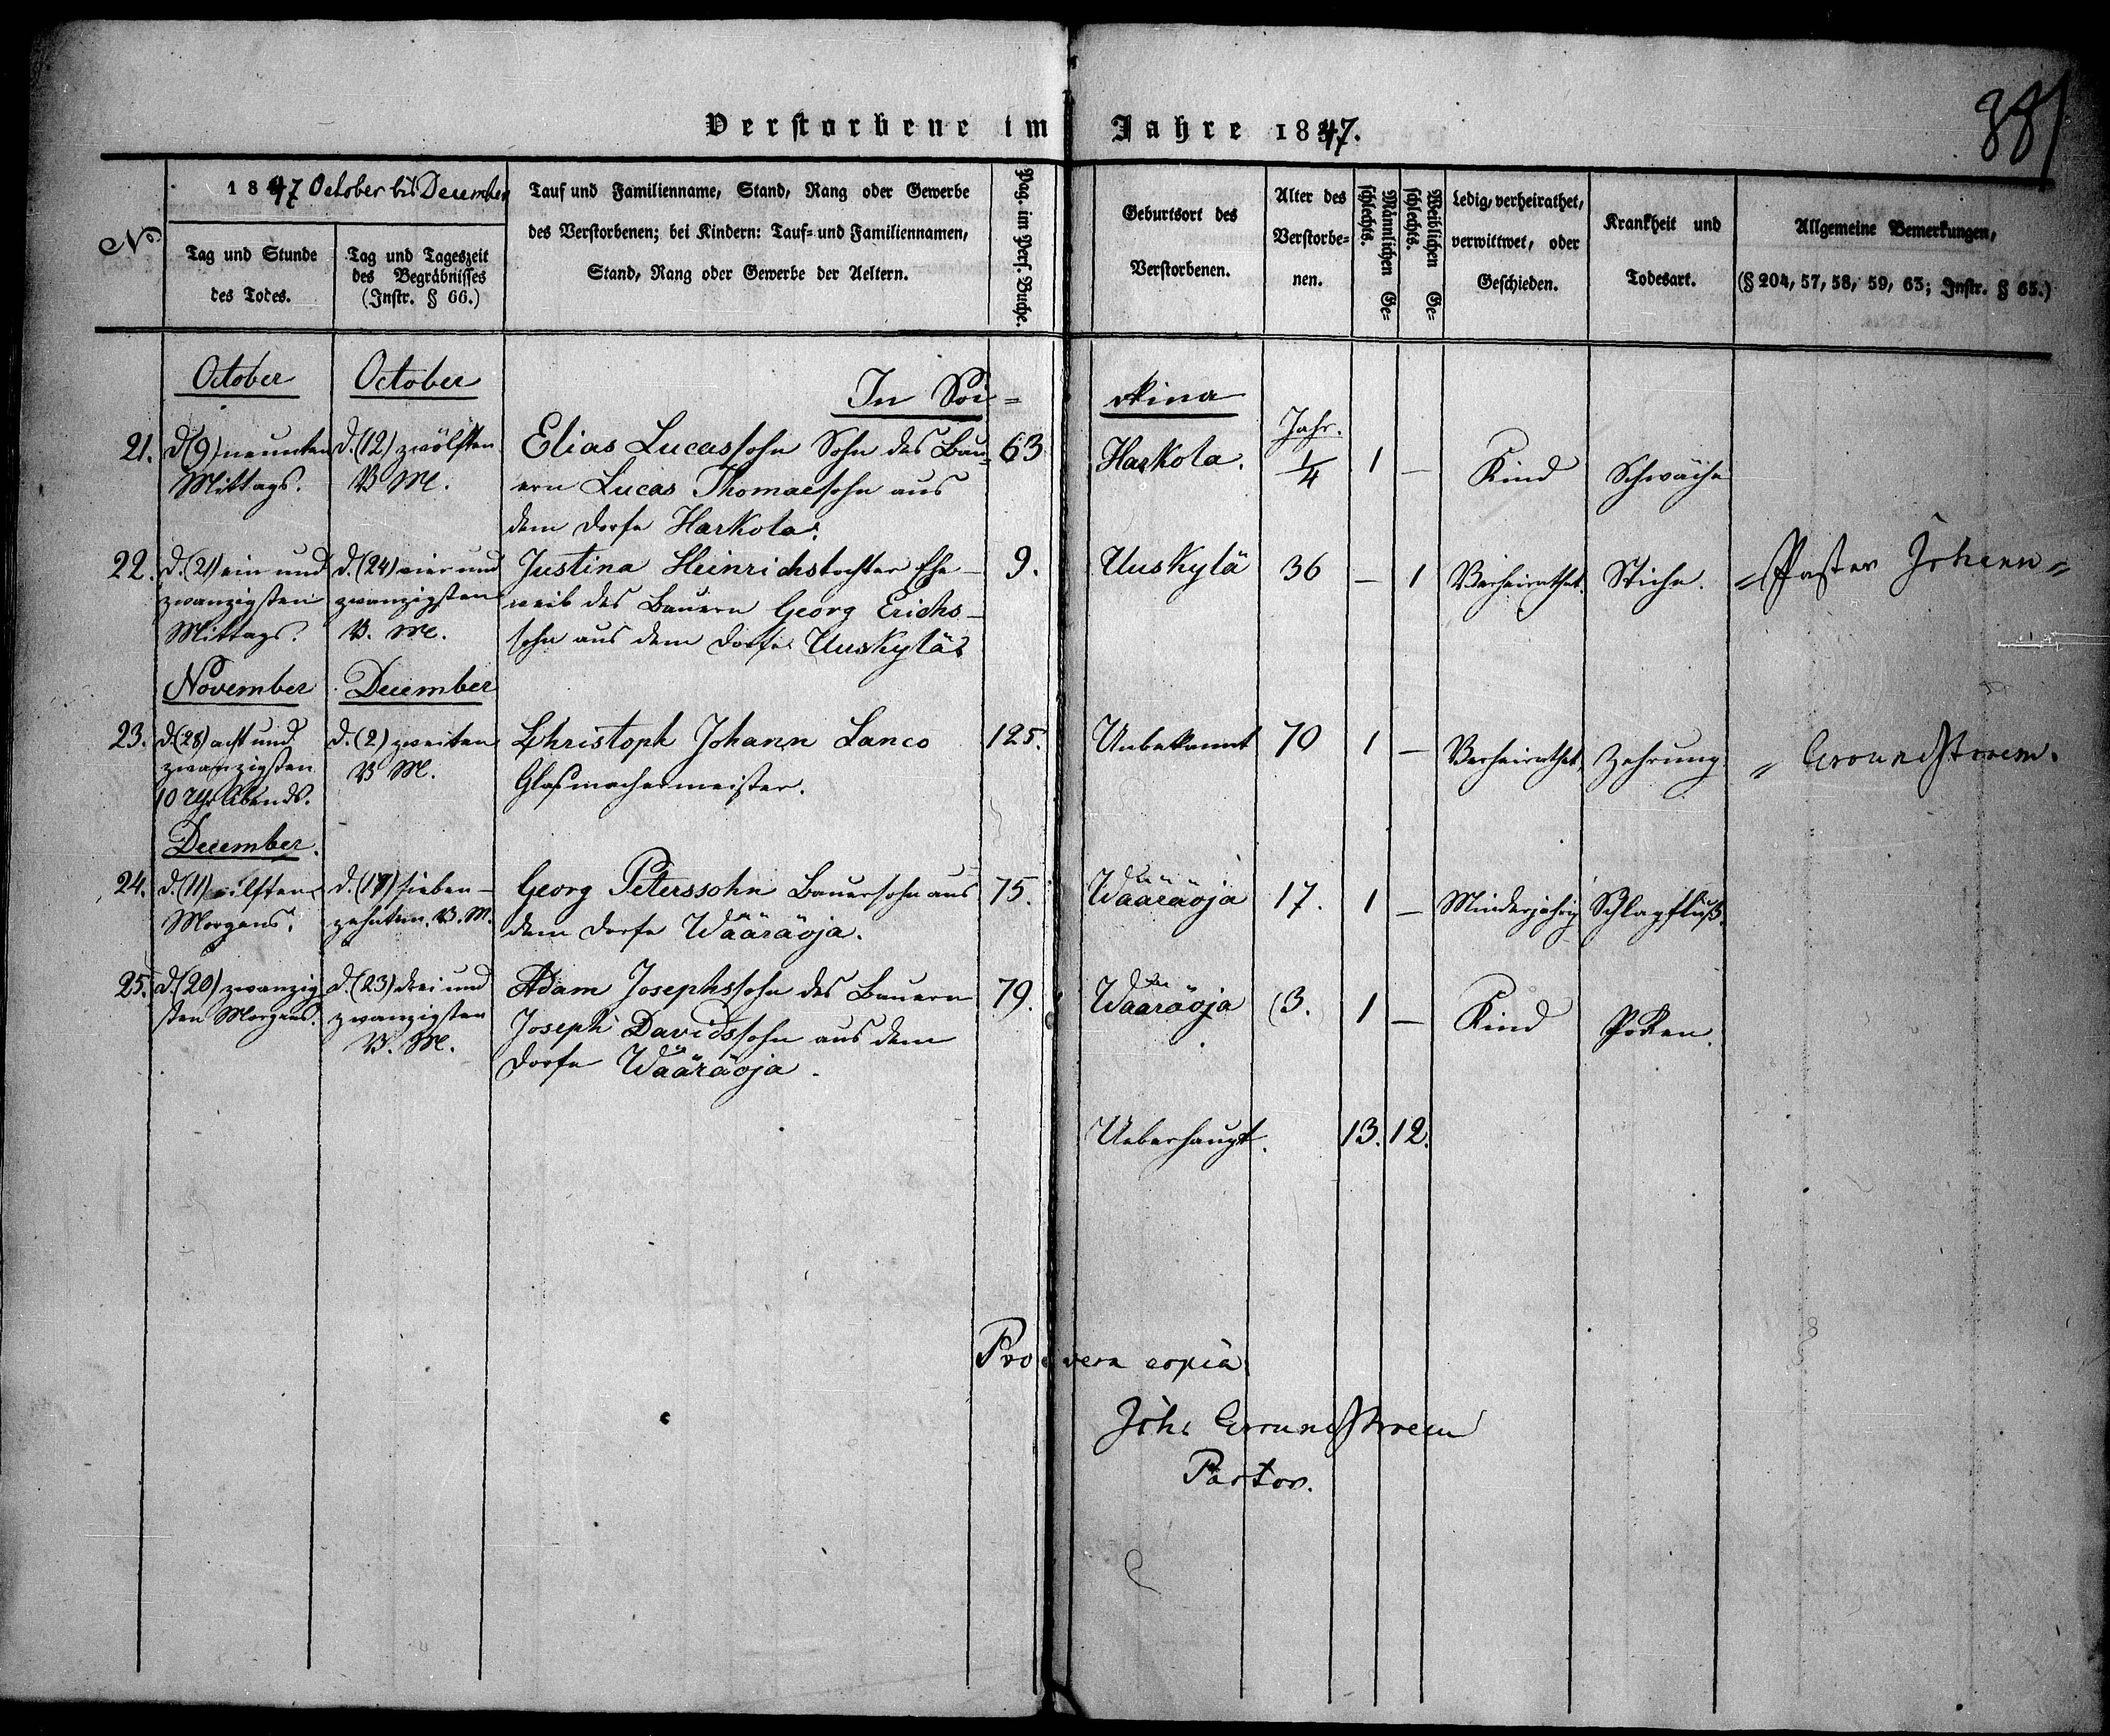 381
Verstorbene im Jahre 1847.
No
1847 October bis December
Tag und Stunde
des Todes.
Tag und Tageszeit
des Begräbnisses
(Instr. § 66.)
Tauf und Familienname, Stand, Rang oder Gewerbe
des Verstorbenen; bei Kindern: Tauf- und Familiennamen,
Stand, Rang oder Gewerbe der Aeltern.
Pag. im Pers. Buche.
Geburtsort des
Verstorbenen.
Alter des
Verstorbe=
nen.
Männlichen Ge=
schlechts.
Weiblichen Ge=
schlechts.
Ledig, verheirathet,
verwittwet, oder
Geschieden.
Krankheit und
Todesart.
Allgemeine Bemerkungen,
(§ 204, 57, 58, 59, 63; Instr. § 65.)
October
October
In Soi=
kina
21.
d. (9) neunten
Mittags.
d. (12) zwölften
V M.
Elias Lucassohn Sohn des Bau-
ern Lucas Thomaesohn aus
dem Dorfe Harkola.
63
Harkola.
Jahr.
1/4
1
—
Kind
Schwäche
22.
d. (21) ein und
zwanzigsten
Mittags.
d. (24) vier und
zwanzigsten
V. M.
Justina Heinrichstochter Ehe-
weib des Bauern Georg Erichs-
sohn aus dem Dorfe Uuskylä
9.
Uuskylä
36
—
1
Verheirathet.
Stiche.
" Pastor Johann "
November
December
23.
d. (28) acht und
zwanzigsten
10 Uhr Abends.
d. (2) zweiten
V M.
Christoph Johann Lanco
Glasmachermeister.
125.
Unbekannt
70
1
—
Verheirathet,
Zehrung.
" Grundstroem.
December.
24.
d. (11) eilften
Morgens.
d. (17) sieben-
zehnten. V. M.
Georg Peterssohn Bauersohn aus
dem Dorfe Wääräoja.
75.
Wääräoja
17.
1
—
Minderjährig
Schlagfluß.
25.
d. (20) zwanzig
sten Morgens.
d. (23) drei und
zwanzigsten
V. M.
Adam Josephssohn des Bauern
Joseph Davidssohn aus dem
Dorfe Wääräoja.
79.
Wääräoja
3.
1
—
Kind
Pocken.
Ueberhaupt.
13.
12.
Pro vera copia
Joh: Grundstroem
Pastor.